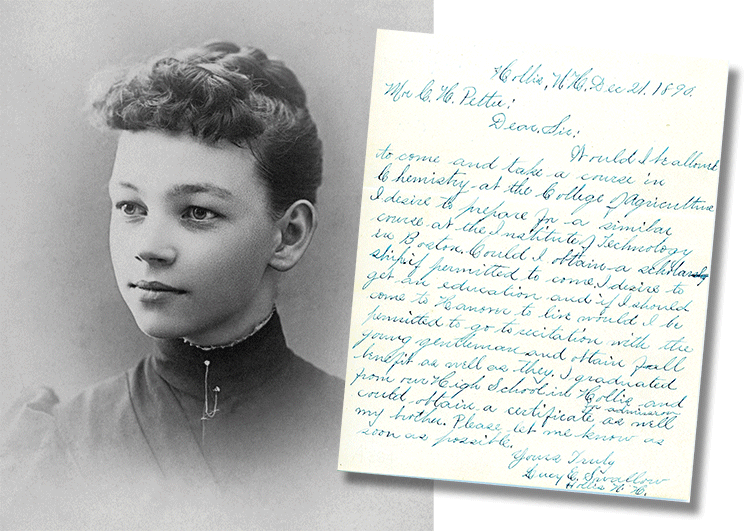 Hollis, N.H. Dec 21. 1890.
Mr C. H. Pettee:
Dear Sir:
Would I be allowed
to come and take a course in
Chemistry at the College of Agriculture
I desire to prepare for a similar
course at the Institute of Technology
in Boston. Could I obtain a scholar
ship if permitted to come. I desire to
get an education and if I should
come to Hanover to live would I be
permitted to go to recitation with the
young gentleman and obtain all
benefit as well as they. I graduated
from our High School in Hollis and
could obtain a certificate for admission as well
my brother. Please let me know as
soon as possible.
Yours Truly
Lucy E. Swallow
Hollis N. H.